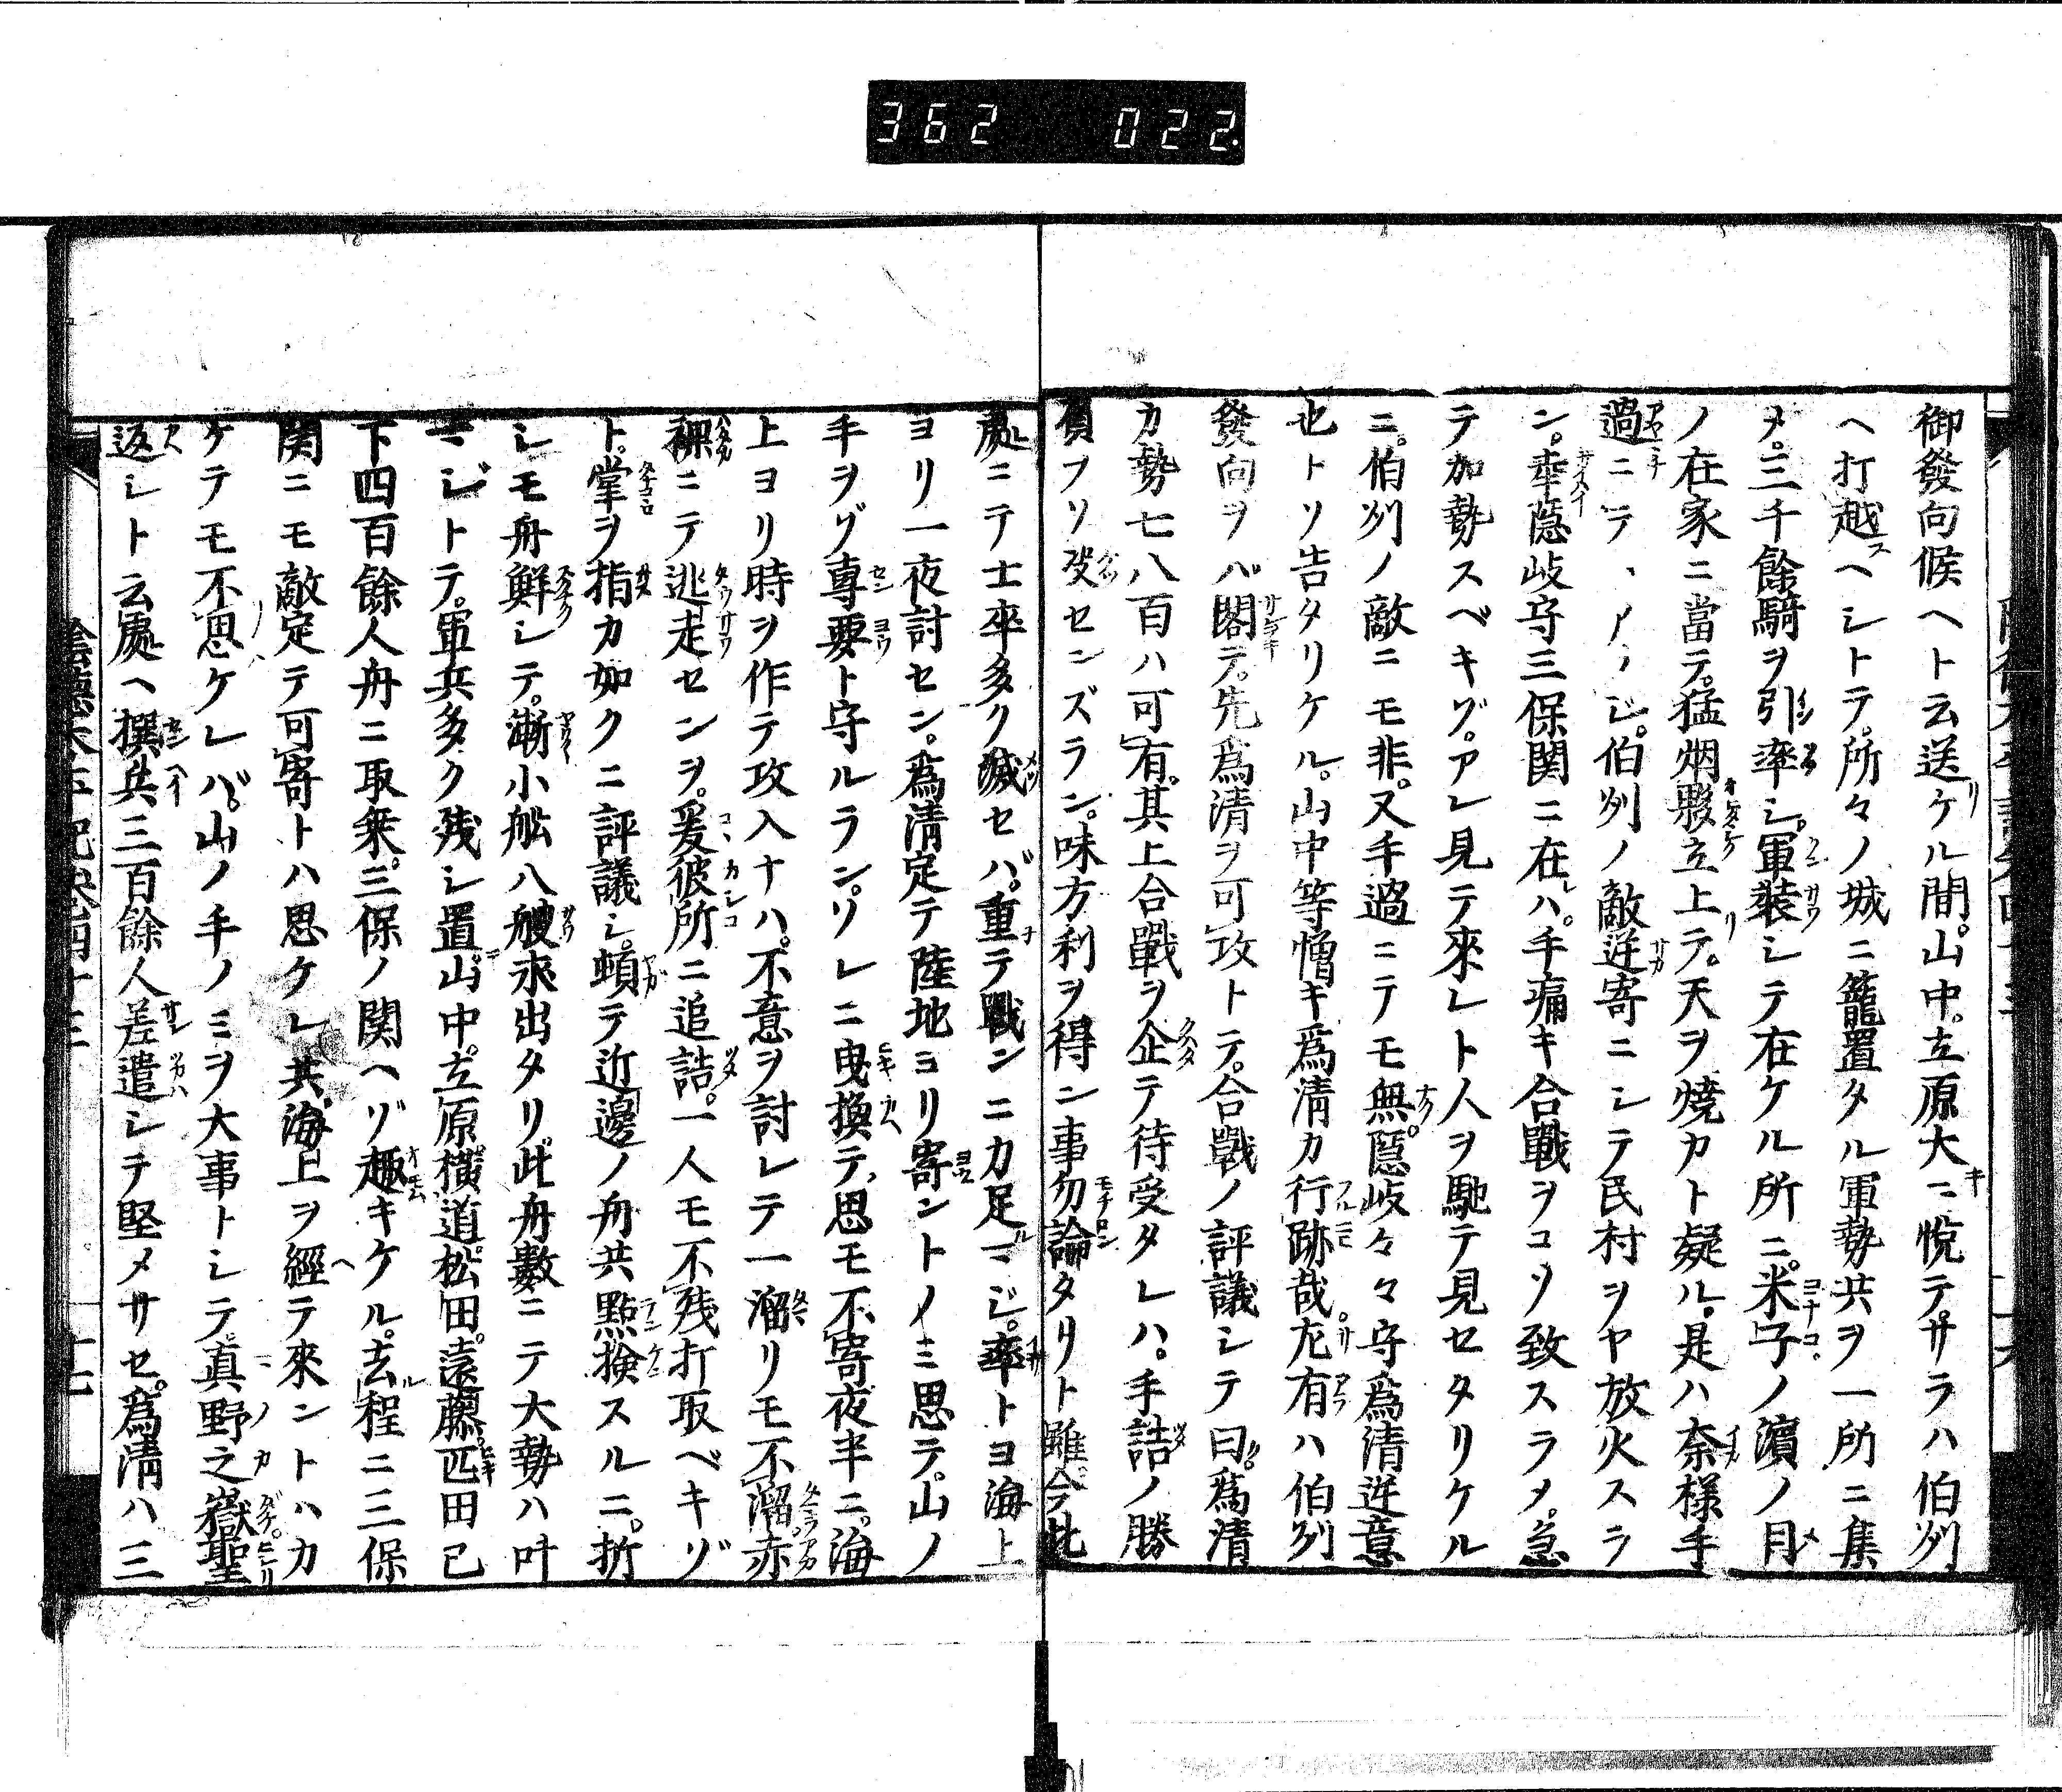 362 022
御發向候ヘト云送ケル間。山中。立原大ニ悦テ。サラハ伯刕
ヘ打越ヘシトテ。所々ノ城ニ籠置タル軍勢共ヲ一所ニ集
メ。三千餘騎ヲ引率シ。軍裝シテ在ケル所ニ。米子ノ濵ノ月
ノ在家ニ當テ。猛烟夥立上テ。天ヲ焼カト疑ル。是ハ奈様手
過ニテヽノヽジ。伯刕ノ敵逆寄ニシテ民村ヲヤ放火スラ
ン。幸隠岐守三保関ニ在ハ。手痛キ合戰ヲコソ致スラメ。急
テ加勢スベキゾ。アレ見テ來レト人ヲ馳テ見セタリケル
ニ。伯刕ノ敵ニモ非。又手過ニテモ無。隠岐々々守爲清逆意
也トソ告タリケル。山中等憎キ爲清カ行跡哉。尤有ハ伯刕
發向ヲバ閣テ。先爲清ヲ可攻トテ。合戰ノ評議シテ曰。爲清
カ勢七八百ハ可有。其上合戰ヲ企テ待受タレハ。手詰ノ勝
負フソ决センズラン。味方利ヲ得ン事勿論タリト雖。今此
處ニテ士卒多ク滅セバ。重テ戰ンニカ足マジ。率トヨ海上
ヨリ一夜討セン。爲清定テ陸地ヨリ寄ントノミ思テ。山ノ
手ヲゾ專要ト守ルラン。ソレニ曳換テ。思モ不寄夜半ニ。海
上ヨリ時ヲ作テ攻入ナハ。不意ヲ討レテ一溜リモ不溜。赤
裸ニテ逃走センヲ。爰彼所ニ追詰。一人モ不残打取ベキゾ
ト。掌ヲ指カ如クニ評議シ。頓テ近邊ノ舟共點撿スルニ。折
シモ舟鮮シテ。漸小舩八艘求出タリ。此舟數ニテ大勢ハ叶
マジトテ。軍兵多ク残シ置。山中。立原。横道。松田。遠藤。疋田已
下四百餘人舟ニ取乗。三保ノ関ヘゾ趣キケル。去程ニ三保
関ニモ敵定テ可寄トハ思ケレ共。海上ヲ經テ來ントハカ
ケテモ不思ケレバ。山ノ手ノミヲ大事トシテ。真野之嶽聖
返シト云處ヘ撰兵三百餘人差遣シテ堅メサセ。爲清ハ三
陰徳太平記巻四十三 十七